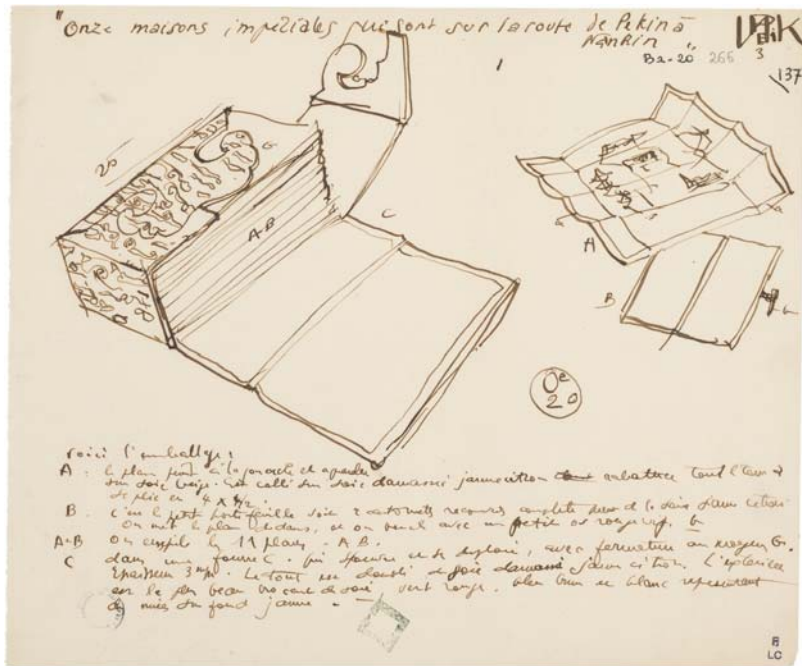 "Onze maisons impériales qui sont sur la route de Pekin à
Nankin"
B2-20 266
3
137
25
G
AB
C
A
a
a
B
G
Oe
20
voici l'emballage :
A - le plan peint à la gouache et aquarelle
sur soie beige. Est collé sur soie damassé jaune citron
se plie en 4 x 1/2.
B. c'est le petit portefeuille soie 2 cartonnets recouverts de la soie jaune citron
On met le plan dedans, et on boucle avec un petit os rouge G
A-B On empile les 11 plans - A B.
C dans une fourre C. qui s'ouvre et se déploie, avec fermeture au moyen G.
Epaisseur 3 mm. Le tout est doublé de soie damassé jaune citron. L'extérieur
est le plus beau brocart de soie vert rouge. bleu brun et blanc représentant
des nuées sur fond jaune -
F
LC